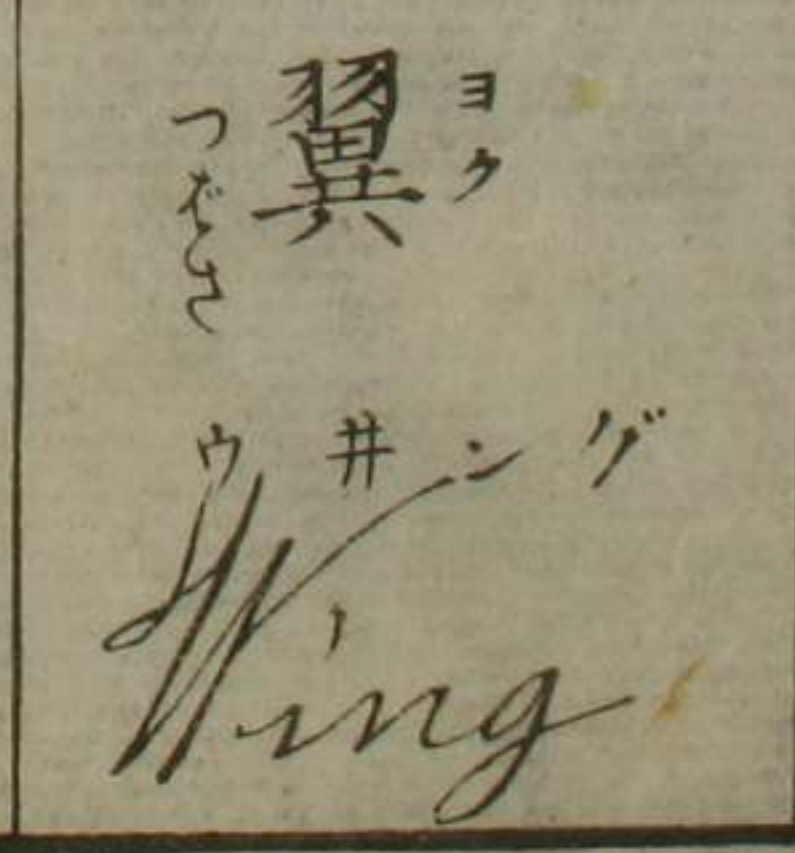 ヨク
翼
つばさ
ウ井ング
Wing